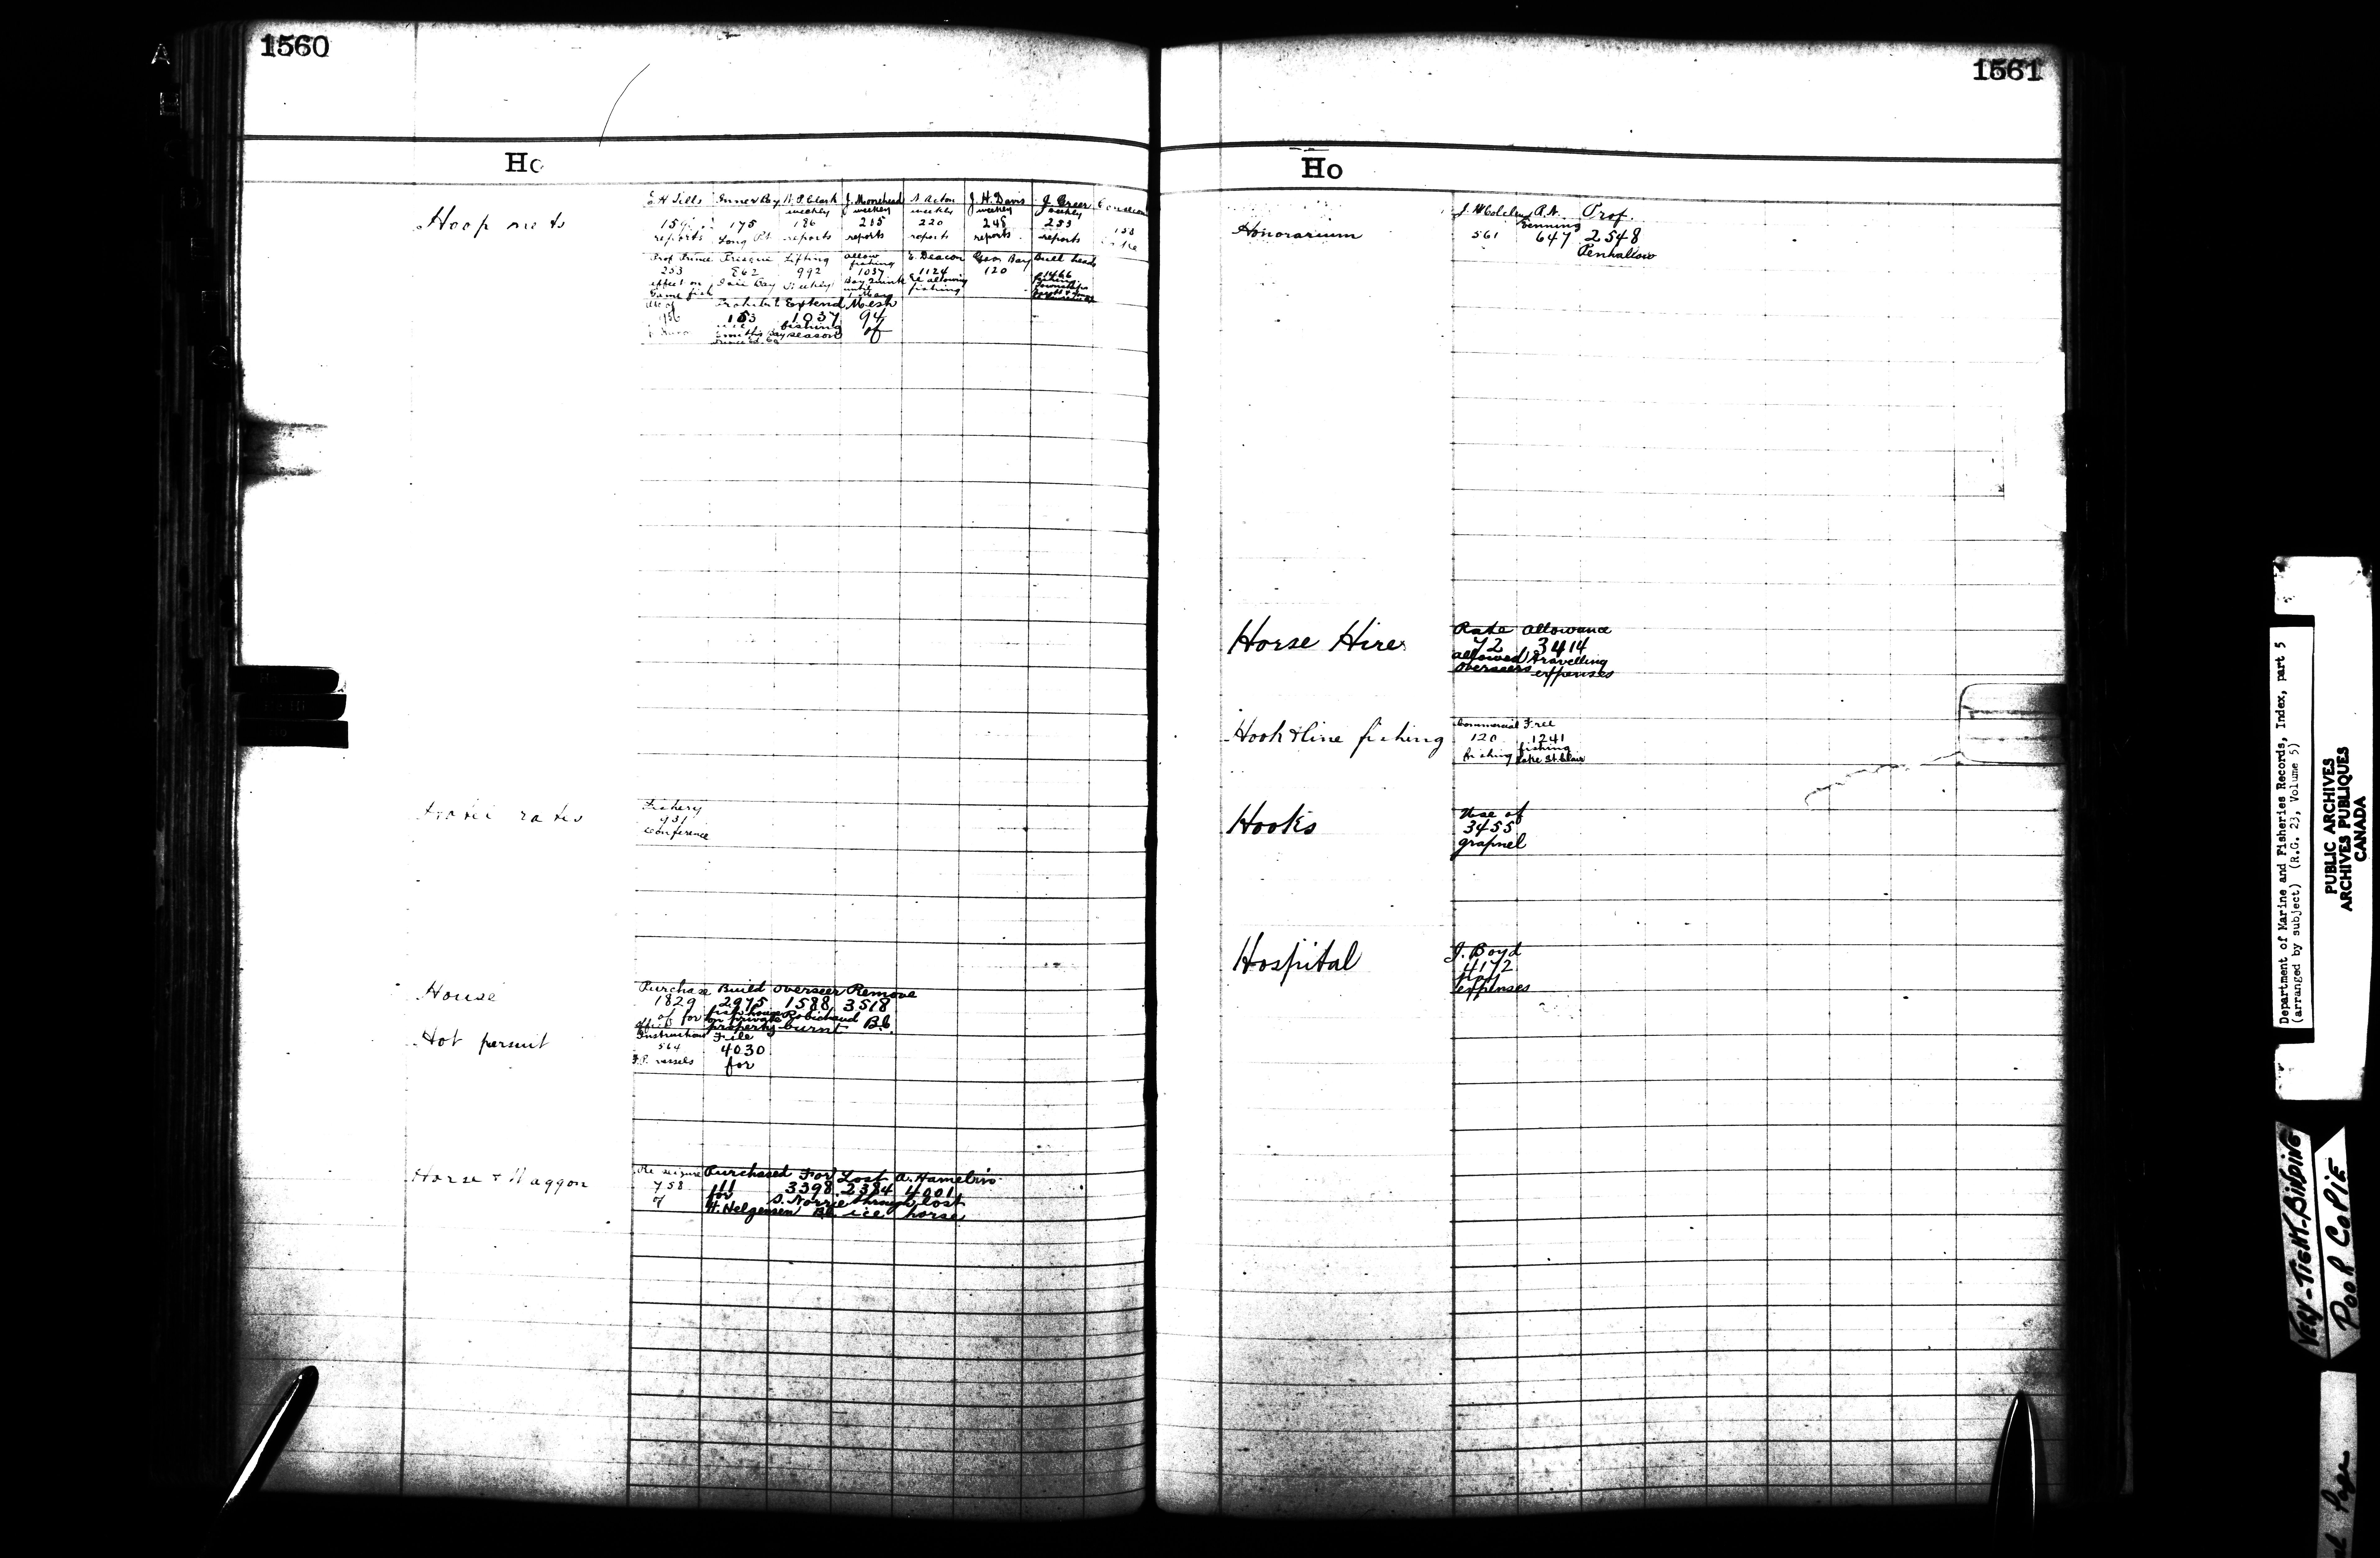 1560
Ho
Hoop nets
E H Sills Inner Bay R. P. Clark J. Moorehead A. Acton J. H. Davis J. Greer Consecon
weekly weekly weekly weekly weekly
159 175 186 215 220 248 253 153
reports Long Pt reports reports reports reports reports Lake
Prof Prince Presque Lifting allow E. Deacon Geor Bay Bull heads
fishing
253 862 992 1037 1124 120 1466
effect on Isle Bay Bay Quinte Re allowing fishing
Game fish until fishing Townships
Prohibit Extend Mesh
153 1037 94
fishing of
season
Hotel rates
Fishery
931
conference
House
Purchase Build Overseer Remove
1829 2975 1588 3518
of for fish house Robichaud B.C.
office on private burnt
property
Hot persuit
Instructions File
564 4030
F.P. vessels for
Horse & Waggon
Re seizure Purchased For Lost A. Hamelin's
758 11 3398 2384 4001
of for S. Norrie through lost
H. Helgesen B.C. ice horse
1561
Ho
Honorarium
R. A. Prof.
Venning
561 647 2548
Penhallow
Horse Hire
Rate Allowance
72 3414
allowed travelling
overseers expenses
Hook & line fishing
Commercial Free
120 1241
fishing fishing
Lake St. Clair
Hooks
Use of
3455
grapnel
Hospital
J. Boyd
4172
expenses
Department of Marine and Fisheries Records, Index, part 5
(arranged by subject) (R.G. 23, Volume 5)
PUBLIC ARCHIVES
ARCHIVES PUBLIQUES
CANADA
VERY-TIGHT-BINDING
POOR COPIE
Page